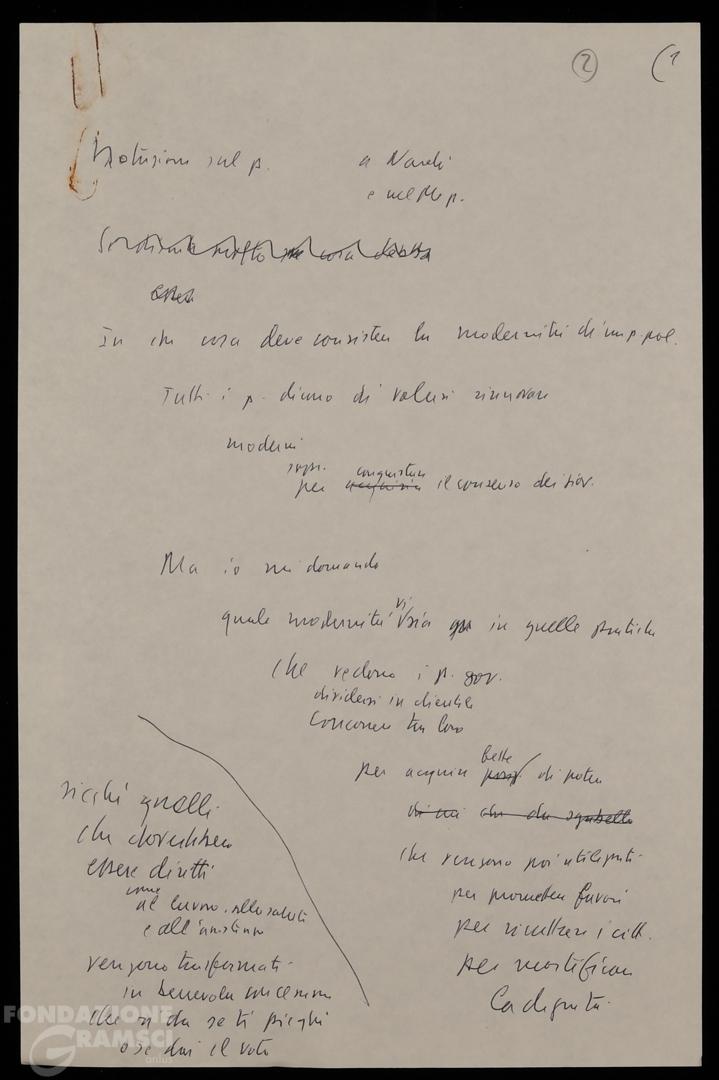 2 (1
sul p. a
e nel
In che cosa deve consistere la modernità di un p. pol.
Tutti i p. dicono di volersi rinnovare
moderni
sopr. conquistare
per il consenso dei giov.
Ma io mi domando
quale modernità vi sia in quelle pratiche
che vedono i p. gov.
dividersi in clientele
concorrere tra loro
per acquisire fette di potere
che vengono poi utilizzati
per promettere favori
per ricattare i citt.
per mortificare
la dignità
sicché quelli
che dovrebbero
essere diritti
come
al lavoro, alla salute
e all'assistenza
vengono trasformati
in benevola concessione
che si dà se ti pieghi
o se dai il voto
FONDAZIONE
GRAMSCI
onlus